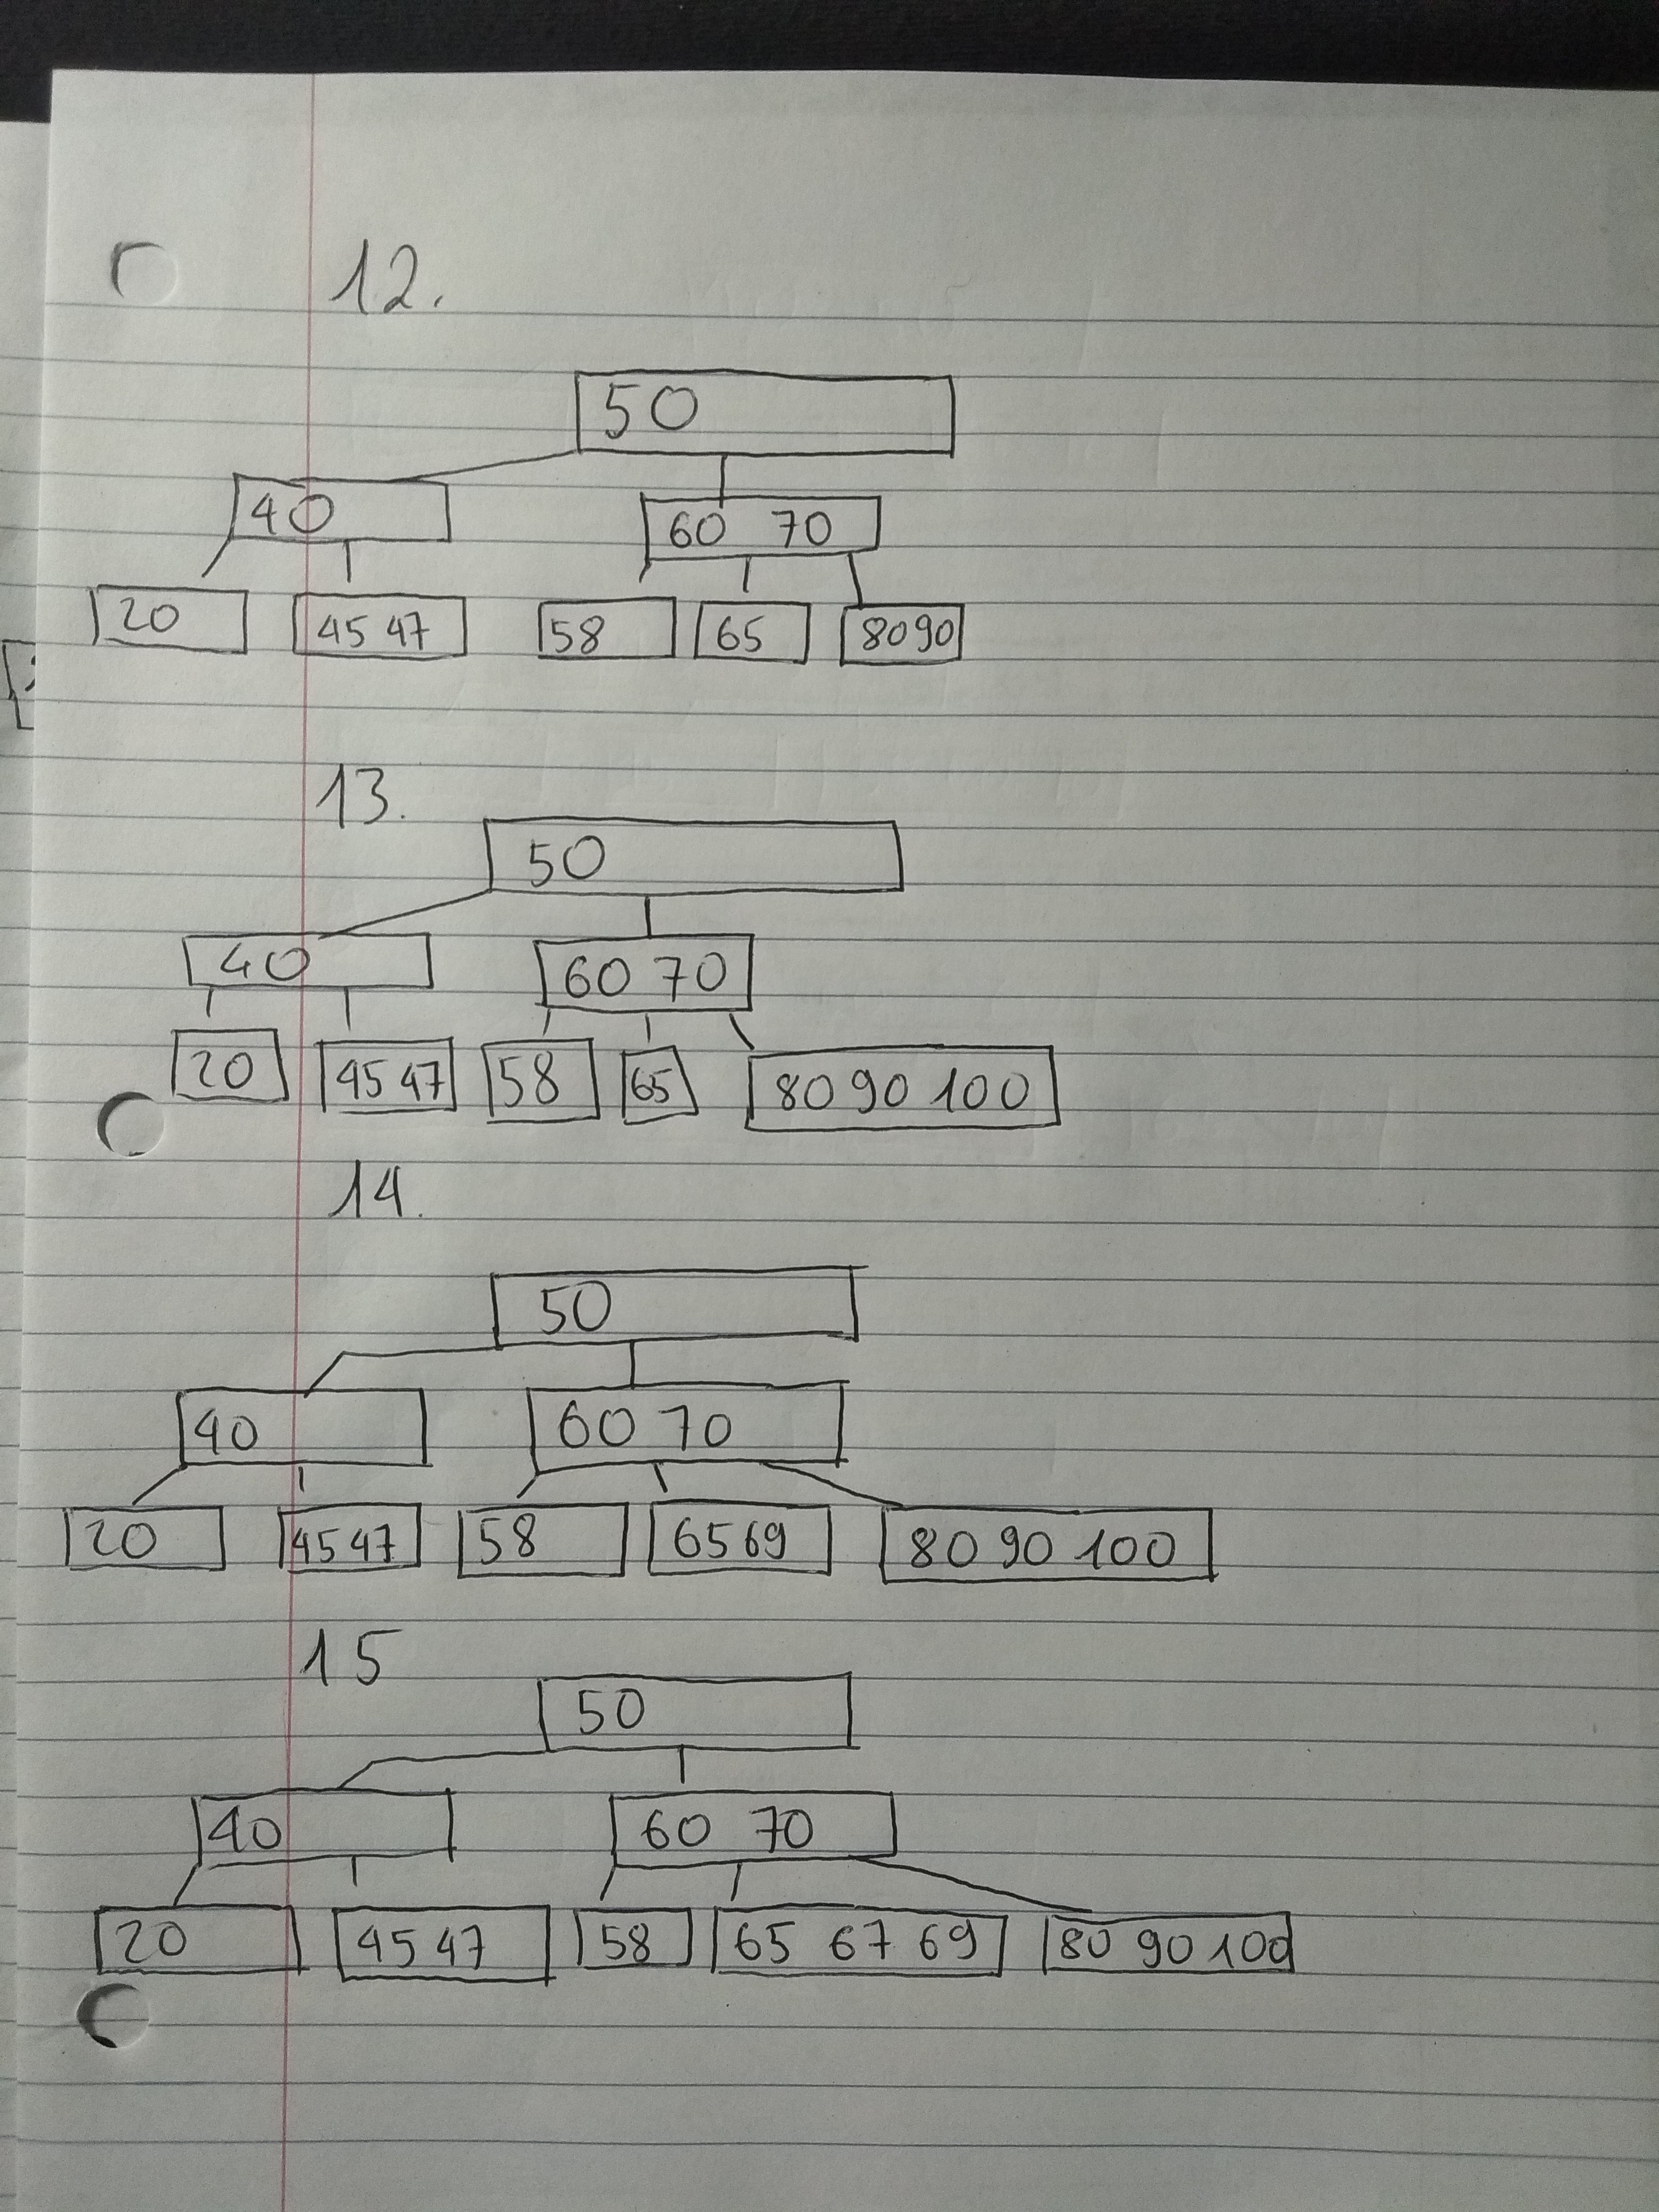 12.
50
40 60 70
20 45 47 58 65 80 90
13.
50
40 60 70
20 45 47 58 65 80 90 100
14.
50
40 60 70
20 45 47 58 65 69 80 90 100
15
50
40 60 70
20 45 47 58 65 67 69 80 90 100